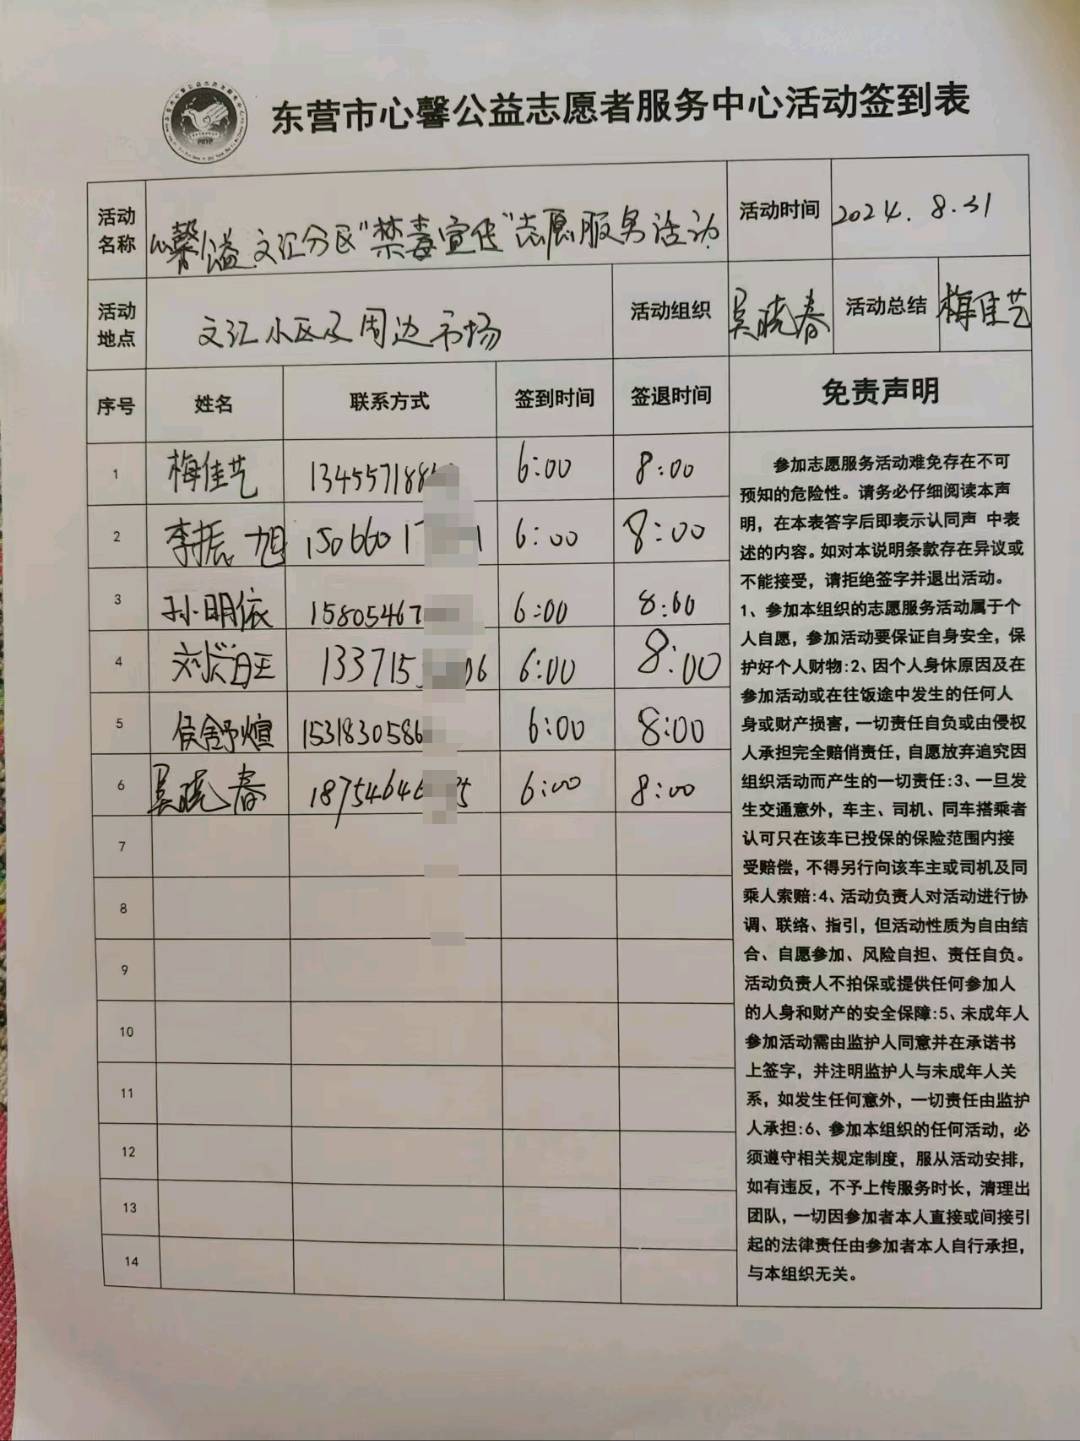 东营市心馨公益志愿者服务中心活动签到表
活动名称 心馨公益文汇分区"禁毒宣传"志愿服务活动 活动时间 2024.8.31
活动地点 文汇小区及周边市场 活动组织 吴晓春 活动总结 梅佳艺
序号 姓名 联系方式 签到时间 签退时间 免责声明
1 梅佳艺 134557188 6:00 8:00
2 李振旭 1506601 1 6:00 8:00
3 孙明依 15805467 6:00 8:00
4 133715 06 6:00 8:00
5 侯舒煊 1531830586 6:00 8:00
6 吴晓春 18754646 5 6:00 8:00
7
8
9
10
11
12
13
14
参加志愿服务活动难免存在不可
预知的危险性。请务必仔细阅读本声
明，在本表答字后即表示认同声 中表
述的内容。如对本说明条款存在异议或
不能接受，请拒绝签字并退出活动。
1、参加本组织的志愿服务活动属于个
人自愿，参加活动要保证自身安全，保
护好个人财物:2、因个人身休原因及在
参加活动或在往饭途中发生的任何人
身或财产损害，一切责任自负或由侵权
人承担完全赔俏责任，自愿放弃追究因
组织活动而产生的一切责任:3、一旦发
生交通意外，车主、司机、同车搭乘者
认可只在该车已投保的保险范围内接
受赔偿，不得另行向该车主或司机及同
乘人索赔:4、活动负责人对活动进行协
调、联络、指引，但活动性质为自由结
合、自愿参加、风险自担、责任自负。
活动负责人不拍保或提供任何参加人
的人身和财产的安全保障:5、未成年人
参加活动需由监护人同意并在承诺书
上签字，并注明监护人与未成年人关
系，如发生任何意外，一切责任由监护
人承担:6、参加本组织的任何活动，必
须遵守相关规定制度，服从活动安排，
如有违反，不予上传服务时长，清理出
团队，一切因参加者本人直接或间接引
起的法律责任由参加者本人自行承担，
与本组织无关。